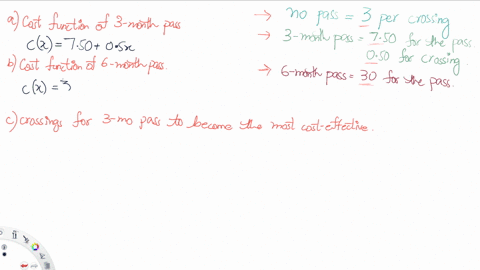 a) Cost function of 3-month pass
C(x) = 7.50 + 0.5x
b) Cost function of 6-month pass.
C(x) = 3
c) crossings for 3-mo pass to become the most cost-effective.
→ no pass = 3 per crossing
→ 3-month pass = 7.50 for the pass
0.50 for crossing.
→ 6-month pass = 30 for the pass.